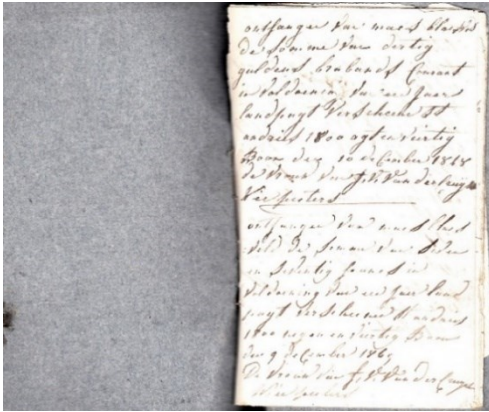 ontfangen van maes
de somme van dertig
guldens brabands Courant
in voldoening van een Jaer
landpagt verscheenen St
andries 1800 agt en viertig
Boom den 10 december 1848
de vrouw van J. V. Van der
Peeters
ontfangen van maes
de somme van
en seventig francs in
voldoening van een Jaer land
pagt verscheenen St andries
1800 negen en viertig Boom
den 9 december
De vrouw van J. V. Van der
Peeters